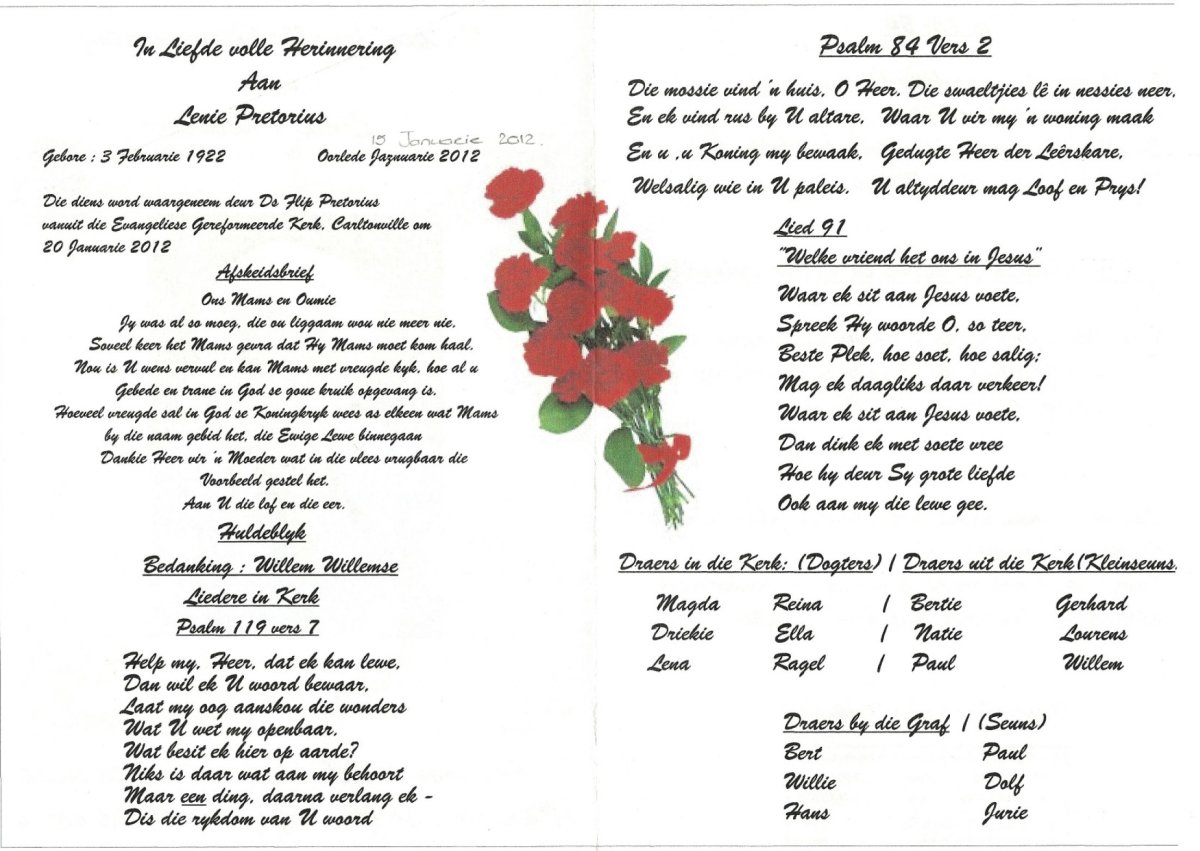 In Liefde volle Herinnering
Aan
Lenie Pretorius
15 Januarie 2012.
Gebore : 3 Februarie 1922 Oorlede Jaznuarie 2012
Die diens word waargeneem deur Ds Flip Pretorius
vanuit die Evangeliese Gereformeerde Kerk, Carltonville om
20 Januarie 2012
Afskeidsbrief
Ons Mams en Oumie
Jy was al so moeg, die ou liggaam wou nie meer nie.
Soveel keer het Mams gevra dat Hy Mams moet kom haal.
Nou is U wens vervul en kan Mams met vreugde kyk, hoe al u
Gebede en trane in God se goue kruik opgevang is.
Hoeveel vreugde sal in God se Koningkryk wees as elkeen wat Mams
by die naam gebid het, die Ewige Lewe binnegaan
Dankie Heer vir ´n Moeder wat in die vlees vrugbaar die
Voorbeeld gestel het.
Aan U die lof en die eer.
Huldeblyk
Bedanking : Willem Willemse
Liedere in Kerk
Psalm 119 vers 7
Help my, Heer, dat ek kan lewe,
Dan wil ek U woord bewaar,
Laat my oog aanskou die wonders
Wat U wet my openbaar,
Wat besit ek hier op aarde?
Niks is daar wat aan my behoort
Maar een ding, daarna verlang ek -
Dis die rykdom van U woord
Psalm 84 Vers 2
Die mossie vind ´n huis, O Heer, Die swaeltjies lê in nessies neer,
En ek vind rus by U altare, Waar U vir my ´n woning maak
En u ,u Koning my bewaak, Gedugte Heer der Leêrskare,
Welsalig wie in U paleis, U altyddeur mag Loof en Prys!
Lied 91
"Welke vriend het ons in Jesus"
Waar ek sit aan Jesus voete,
Spreek Hy woorde O, so teer,
Beste Plek, hoe soet, hoe salig;
Mag ek daagliks daar verkeer!
Waar ek sit aan Jesus voete,
Dan dink ek met soete vree
Hoe hy deur Sy grote liefde
Ook aan my die lewe gee.
Draers in die Kerk: (Dogters) / Draers uit die Kerk(Kleinseuns,
Magda Reina / Bertie Gerhard
Driekie Ella / Natie Lourens
Lena Ragel / Paul Willem
Draers by die Graf / (Seuns)
Bert Paul
Willie Dolf
Hans Jurie